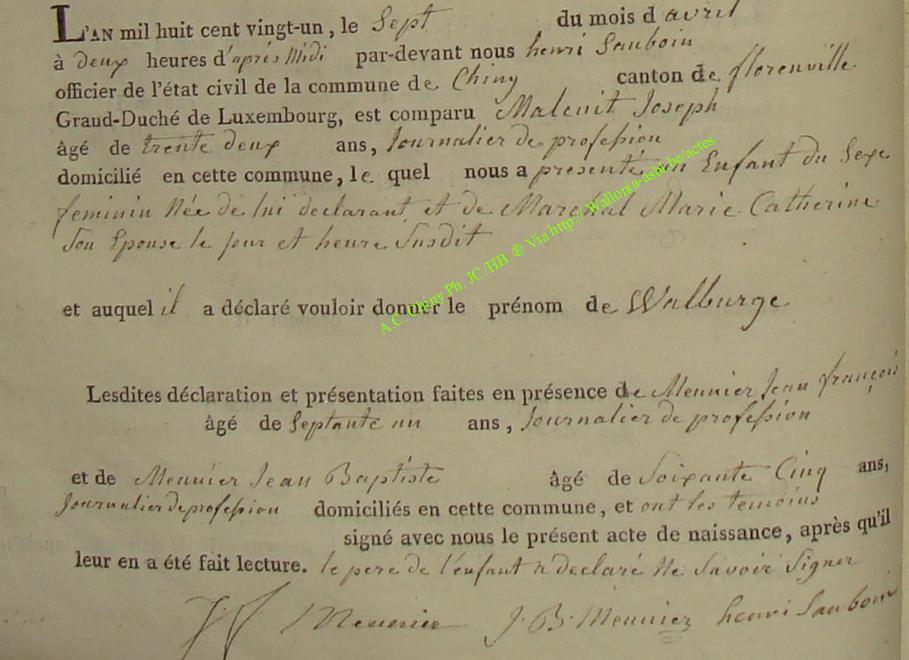 L'AN mil huit cent vingt-un, le Sept du mois d avril
à deux heures d'après Midi par-devant nous henri Sauboin
officier de l'état civil de la commune de Chiny canton de florenville
Grand-Duché de Luxembourg, est comparu Malenit Joseph
âgé de trente deux ans, Journalier de profession
domicilié en cette commune, le quel nous a presenté un Enfant du Sexe
feminin Née de lui declarant et de Marchal Marie Catherine
Son Epouse le jour et heure Susdit
et auquel il a déclaré vouloir donner le prénom de Walburge
Lesdites déclaration et présentation faites en présence de Meunier Jean françois
âgé de Septante un ans, Journalier de profession
et de Meunier Jean Baptiste âgé de Soixante Cinq ans,
Journalier de profession domiciliés en cette commune, et ont les temoins
signé avec nous le présent acte de naissance, après qu'il
leur en a été fait lecture. le pere de l'enfant a declaré Ne Savoir Signer
Meunier J. B. Meunier henri Sauboin
A.C. Chiny Ph. JC/HB ® Via http://Wallonia-asbl.be/actes